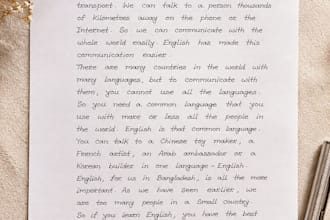 transport. We can talk to a person thousands
of Kilometres away on the phone or the
Internet. So we can communicate with the
whole world easily. English has made this
communication easier.
There are many countries in the world with
many languages, but to communicate with
them, you cannot use all the languages.
So you need a common language that you
use with more or less all the people in
the world. English is that common language.
You can talk to a Chinese toy maker, a
French artist, an Arab ambassador or a
Korean builder in one language - English.
English, for us in Bangladesh, is all the more
important. As we have seen earlier, we
are too many people in a Small country.
So if you learn English, you have the best